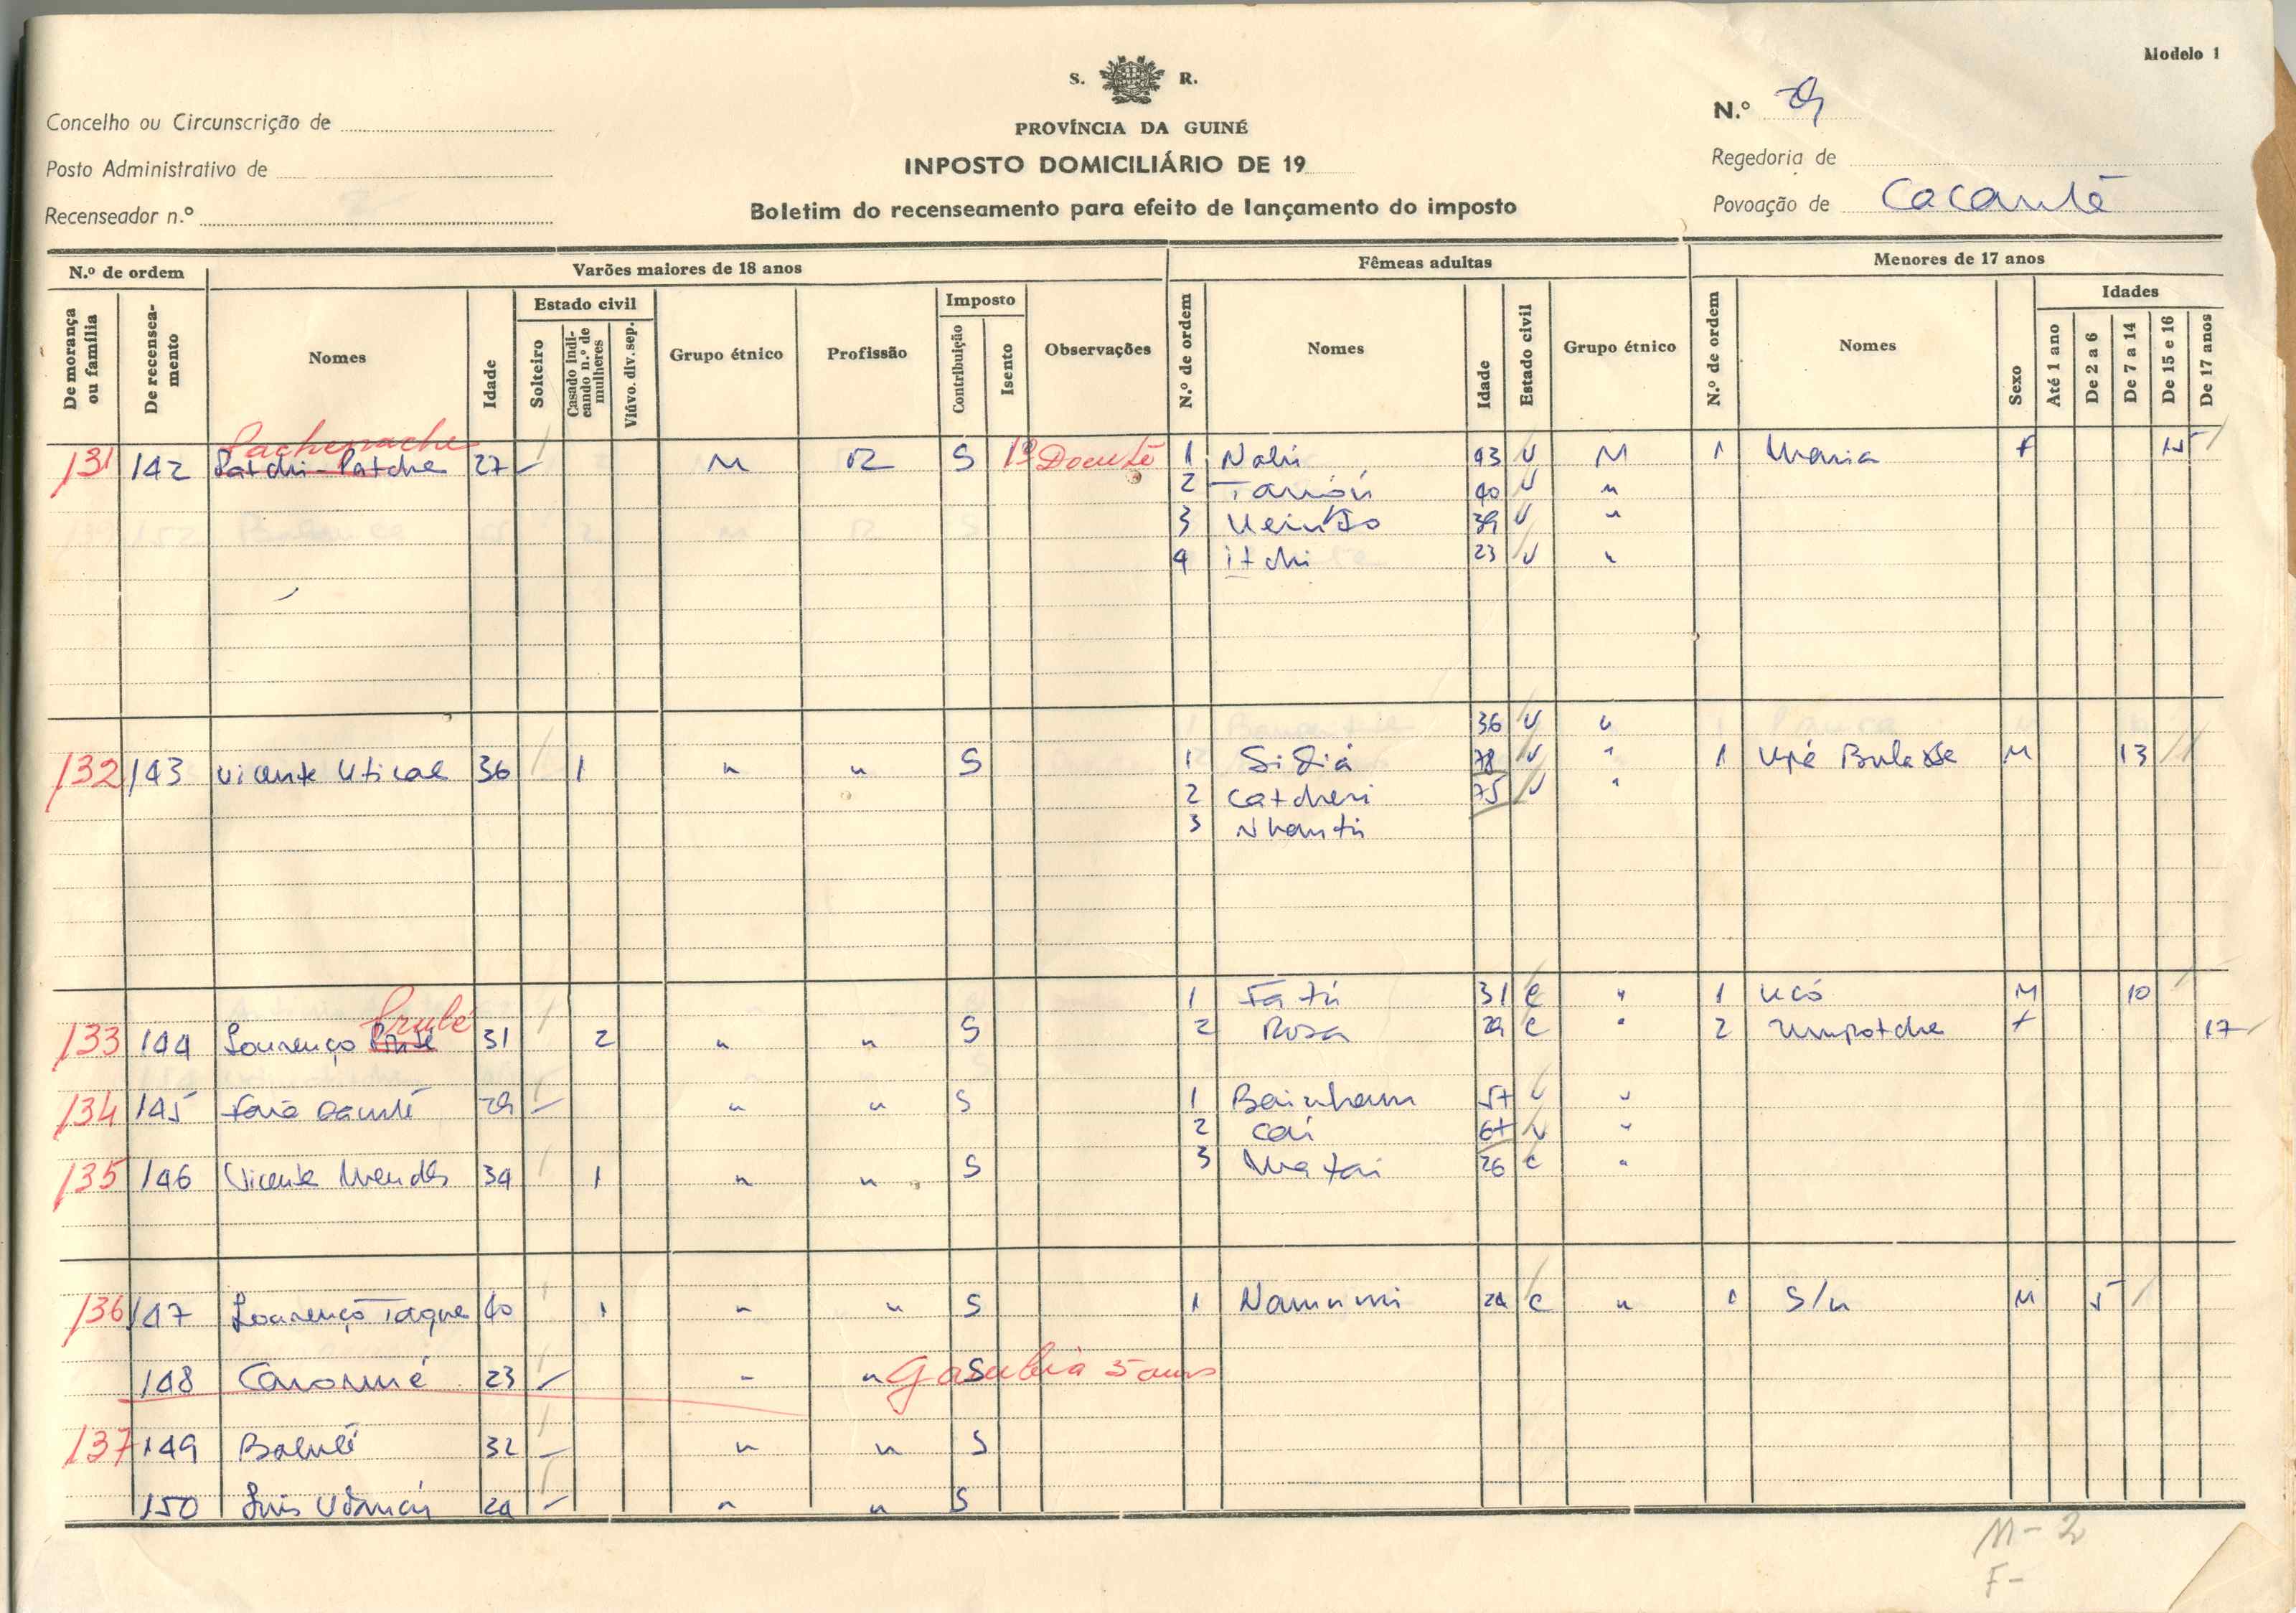 Modelo 1
S. R.
N.º
Concelho ou Circunscrição de
PROVÍNCIA DA GUINÉ
Posto Administrativo de
INPOSTO DOMICILIÁRIO DE 19
Regedoria de
Recenseador n.º
Boletim do recenseamento para efeito de lançamento do imposto
Povoação de Cacanté
N.º de ordem Varões maiores de 18 anos Fêmeas adultas Menores de 17 anos
De morança ou família De recenseamento Nomes Idade Estado civil Solteiro Casado indicando n.º de mulheres Viúvo. div. sep. Grupo étnico Profissão Imposto Contribuição Isento Observações N.º de ordem Nomes Idade Estado civil Grupo étnico N.º de ordem Nomes Sexo Idades Até 1 ano De 2 a 6 De 7 a 14 De 15 e 16 De 17 anos
131 142 Patchi-Patche 27 M R S 1 43 V M 1 Maria F 15
2 40 V "
3 39 V "
4 itchi 23 V "
36 V "
132 143 Vicente 36 1 " " S 1 78 V " 1 M 13
2 Catcheri 75 V "
3 Nhantú
1 Fatú 31 C " 1 Ucó M 10
133 144 Lourenço 31 2 " " S 2 Rosa 29 C " 2 Umpotche F 17
134 145 29 " " S 1 57 V "
2 Cai 67 V "
135 146 Vicente Mendes 34 1 " " S 3 26 C "
136 147 Lourenço Taque 40 1 " " S 1 C " 1 S/n M 5
148 23 " " S 5 anos
137 149 Babulé 32 " " S
150 Luis " " S
M - 2
F -